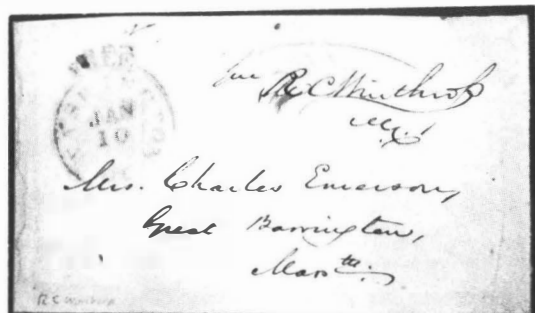 FREE
JAN
10
R C Winthrop
M.C.
Mrs. Charles Emerson,
Great Barrington,
Masstts.
R C Winthrop